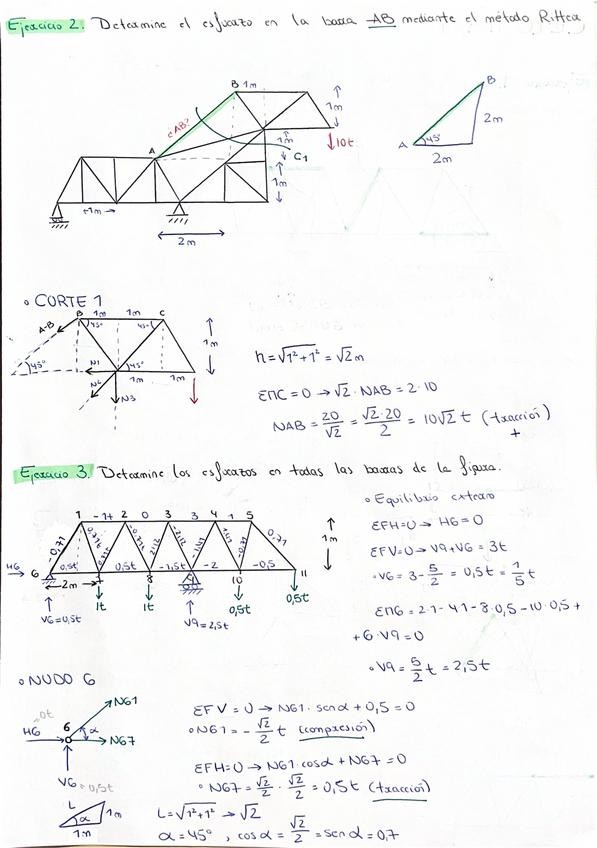 Ejercicio 2. Determine el esfuerzo en la barra AB mediante el método Ritter
B 1m
¿AB?
1m
A
1m
10t
C1
1m
1m
2m
B
2m
A 45°
2m
• CORTE 1
A-B
B 1m 1m C
45° 45°
1m
45°
N1
45°
N2
1m 1m
N3
h = √1²+1² = √2 m
ΣMC=0 → √2 · NAB = 2·10
NAB = 20/√2 = √2·20/2 = 10√2 t (tracción)
+
Ejercicio 3. Determine los esfuerzos en todas las barras de la figura.
1 -1t 2 0 3 3 4 1 5
-0,71
0,71
1m
H6
6 0,5t 0,5t -1,5t -2 -0,5
2m
8 10 11
1t 1t 0,5t 0,5t
V6=0,5t V9=2,5t
• Equilibrio externo
ΣFH=0 → H6=0
ΣFV=0 → V9+V6 = 3t
◦V6 = 3 - 5/2 = 0,5t = 1/5 t
ΣM6 = 2·1 - 4·1 - 8·0,5 - 10·0,5 +
+ 6·V9 = 0
◦V9 = 5/2 t = 2,5t
• NUDO 6
0t
H6
6
N61
α
N67
V6 = 0,5t
ΣFV = 0 → N61 · senα + 0,5 = 0
◦N61 = - √2/2 t (compresión)
ΣFH=0 → N61·cosα + N67 = 0
◦N67 = √2/2 · √2/2 = 0,5t (tracción)
L 1m
α
1m
L = √1²+1² → √2
α = 45° , cosα = √2/2 = senα = 0,7